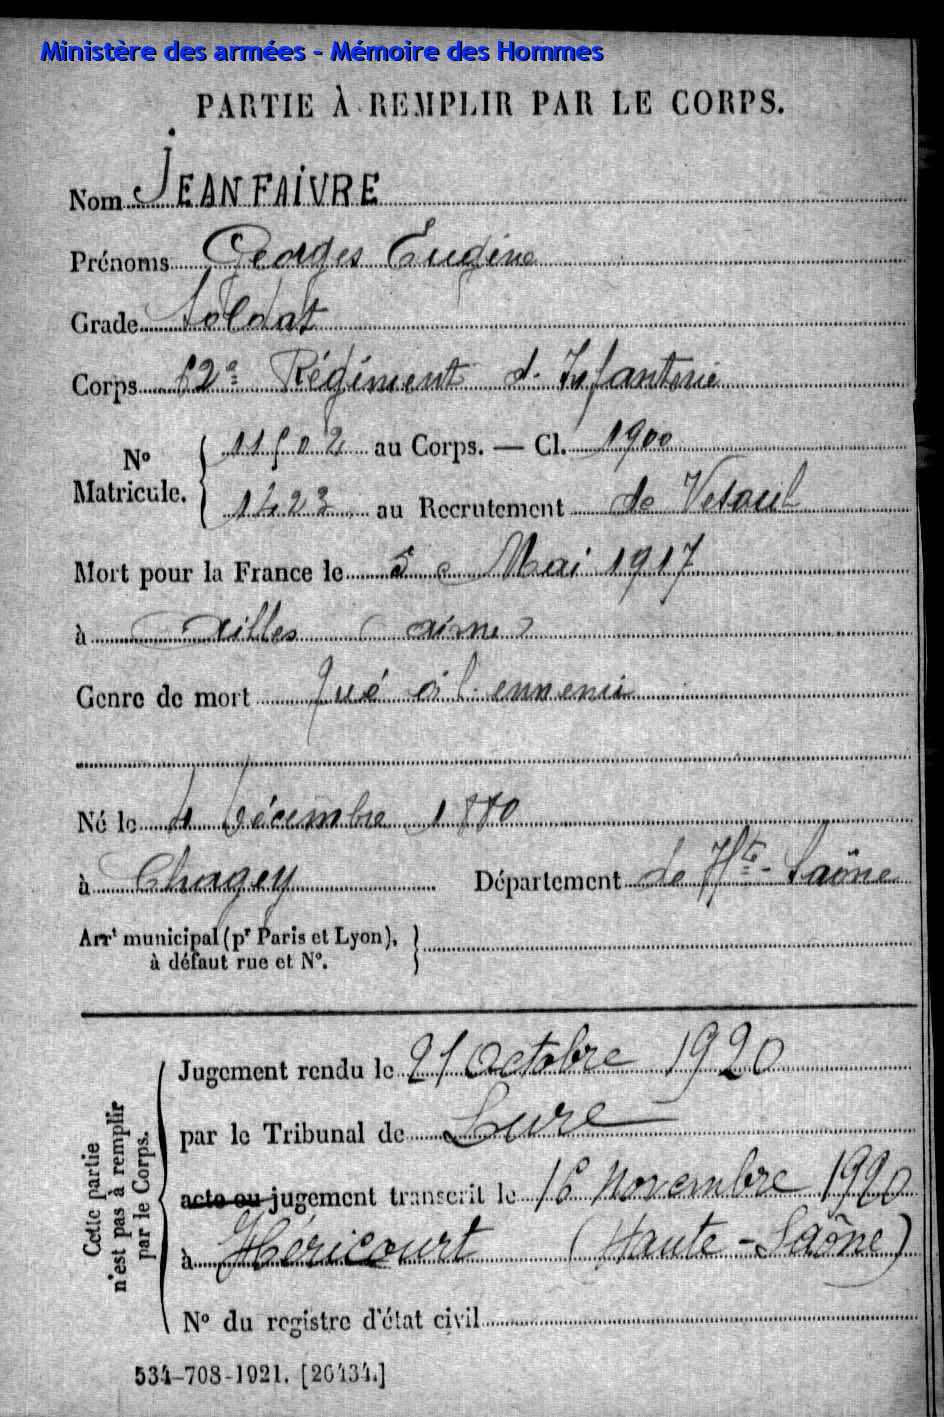 Ministère des armées - Mémoire des Hommes
PARTIE À REMPLIR PAR LE CORPS.
Nom JEANFAIVRE
Prénoms Georges Eugène
Grade Soldat
Corps 62e Régiment d'Infanterie
No Matricule. { 11502 au Corps. — Cl. 1900
1423 au Recrutement de Vesoul
Mort pour la France le 5 Mai 1917
à Ailles (Aisne)
Genre de mort Tué à l'ennemi
Né le 4 Décembre 1880
à Chagey Département de Hte-Saône
Arrt municipal (pr Paris et Lyon), }
à défaut rue et No.
Cette partie n'est pas à remplir par le Corps.
Jugement rendu le 21 Octobre 1920
par le Tribunal de Lure
acte ou jugement transcrit le 16 Novembre 1920
à Héricourt (Haute-Saône)
No du registre d'état civil
534-708-1921. [26434.]